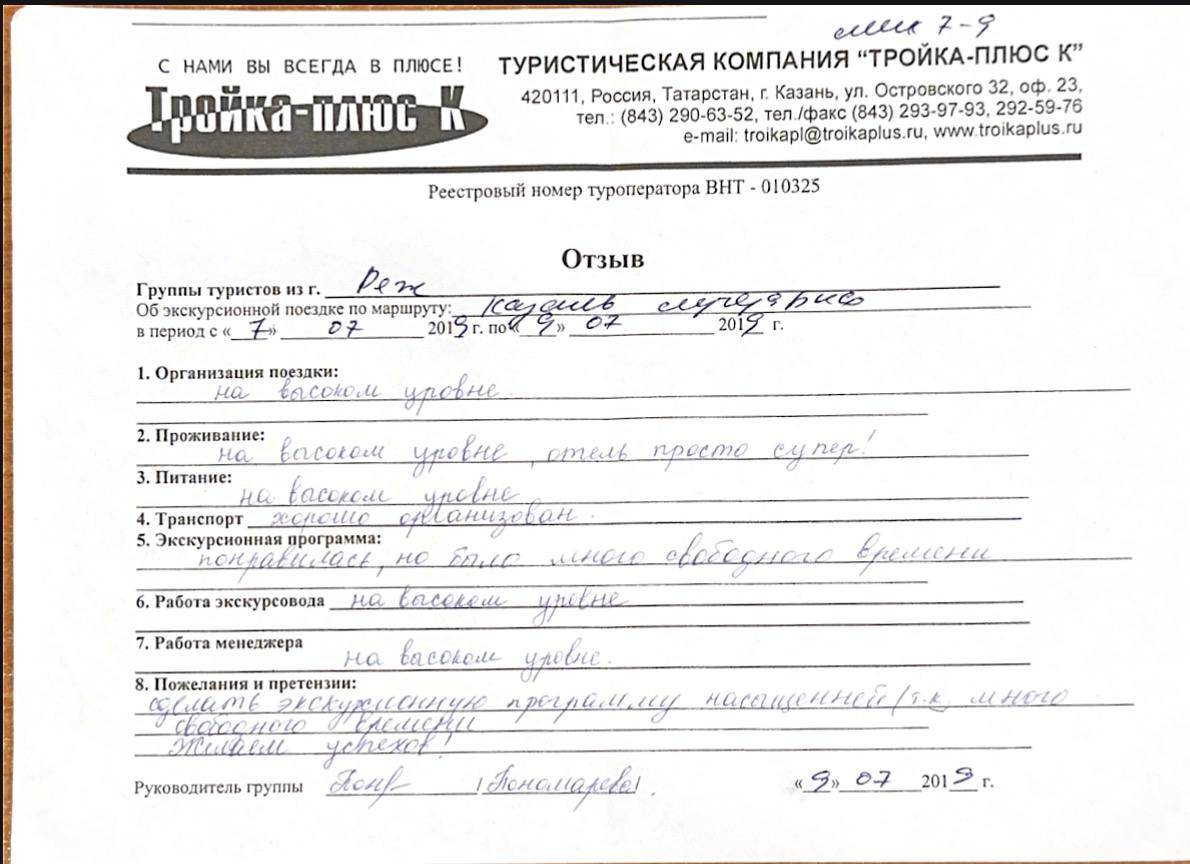 7-9
С НАМИ ВЫ ВСЕГДА В ПЛЮСЕ!
Тройка-плюс К
ТУРИСТИЧЕСКАЯ КОМПАНИЯ "ТРОЙКА-ПЛЮС К"
420111, Россия, Татарстан, г. Казань, ул. Островского 32, оф. 23,
тел.: (843) 290-63-52, тел./факс (843) 293-97-93, 292-59-76
e-mail: troikapl@troikaplus.ru, www.troikaplus.ru
Реестровый номер туроператора ВНТ - 010325
Отзыв
Группы туристов из г. Реж
Об экскурсионной поездке по маршруту: Казань
в период с «7» 07 2019 г. по «9» 07 2019 г.
1. Организация поездки:
на высоком уровне.
2. Проживание:
на высоком уровне, отель просто супер!
3. Питание:
на высоком уровне
4. Транспорт хорошо организован.
5. Экскурсионная программа:
понравилась, но было много свободного времени
6. Работа экскурсовода на высоком уровне
7. Работа менеджера
на высоком уровне.
8. Пожелания и претензии:
сделать экскурсионную программу насыщенней/т.к. много
свободного времени
Желаем успехов!
Руководитель группы /Пономарева/. «9» 07 2019 г.